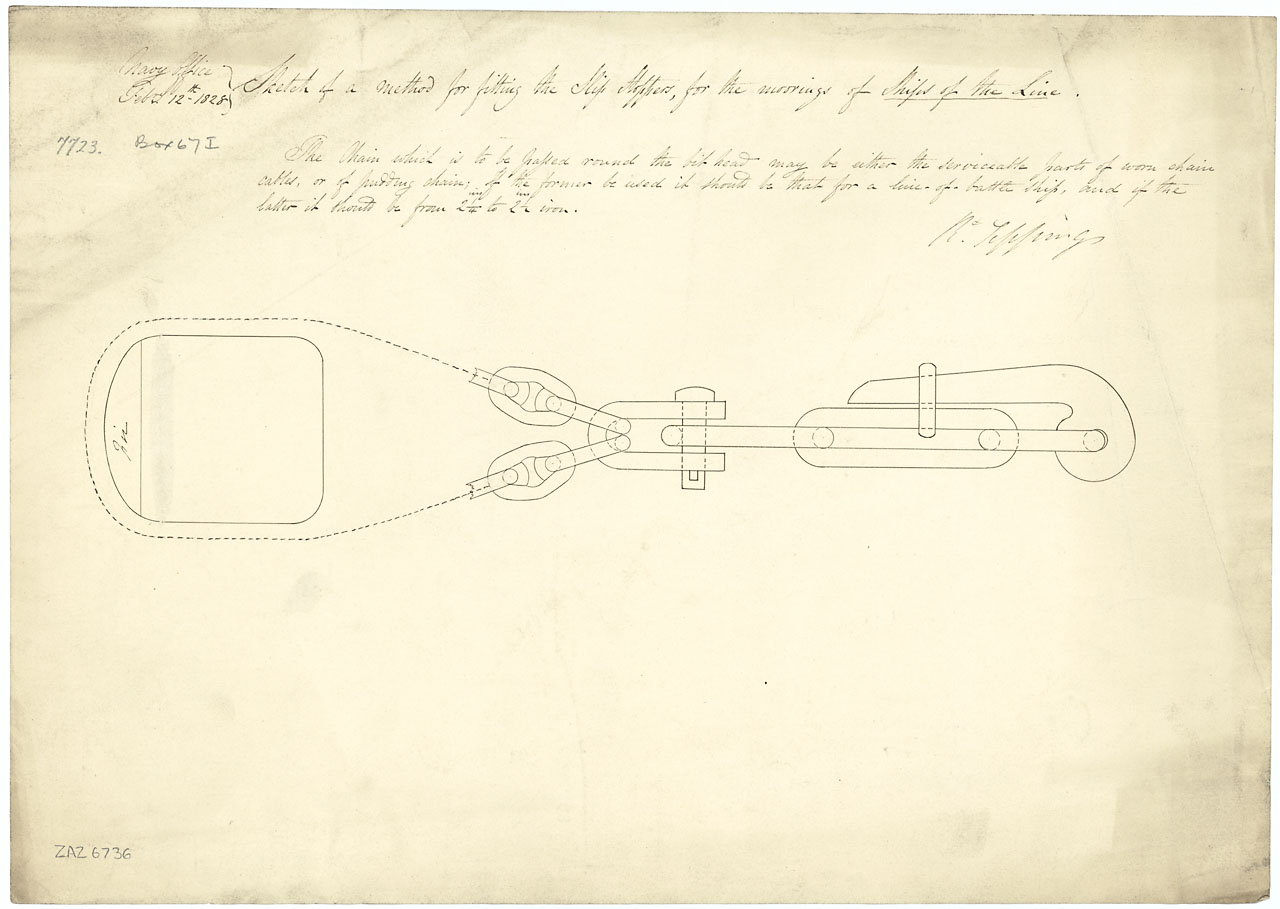 Navy Office
Feb.y 12th 1828
Sketch of a method for fitting the Slip Stoppers, for the moorings of Ships of the Line.
7723. Box 67 I
The Chain which is to be passed round the bit head may be either the serviceable parts of worn chain
cables, or of pudding chain; If the former be used it should be that for a line-of-battle Ship, and if the
latter it should be from 2¼ ins to 2½ ins iron.
Rt Seppings
Fir
ZAZ6736